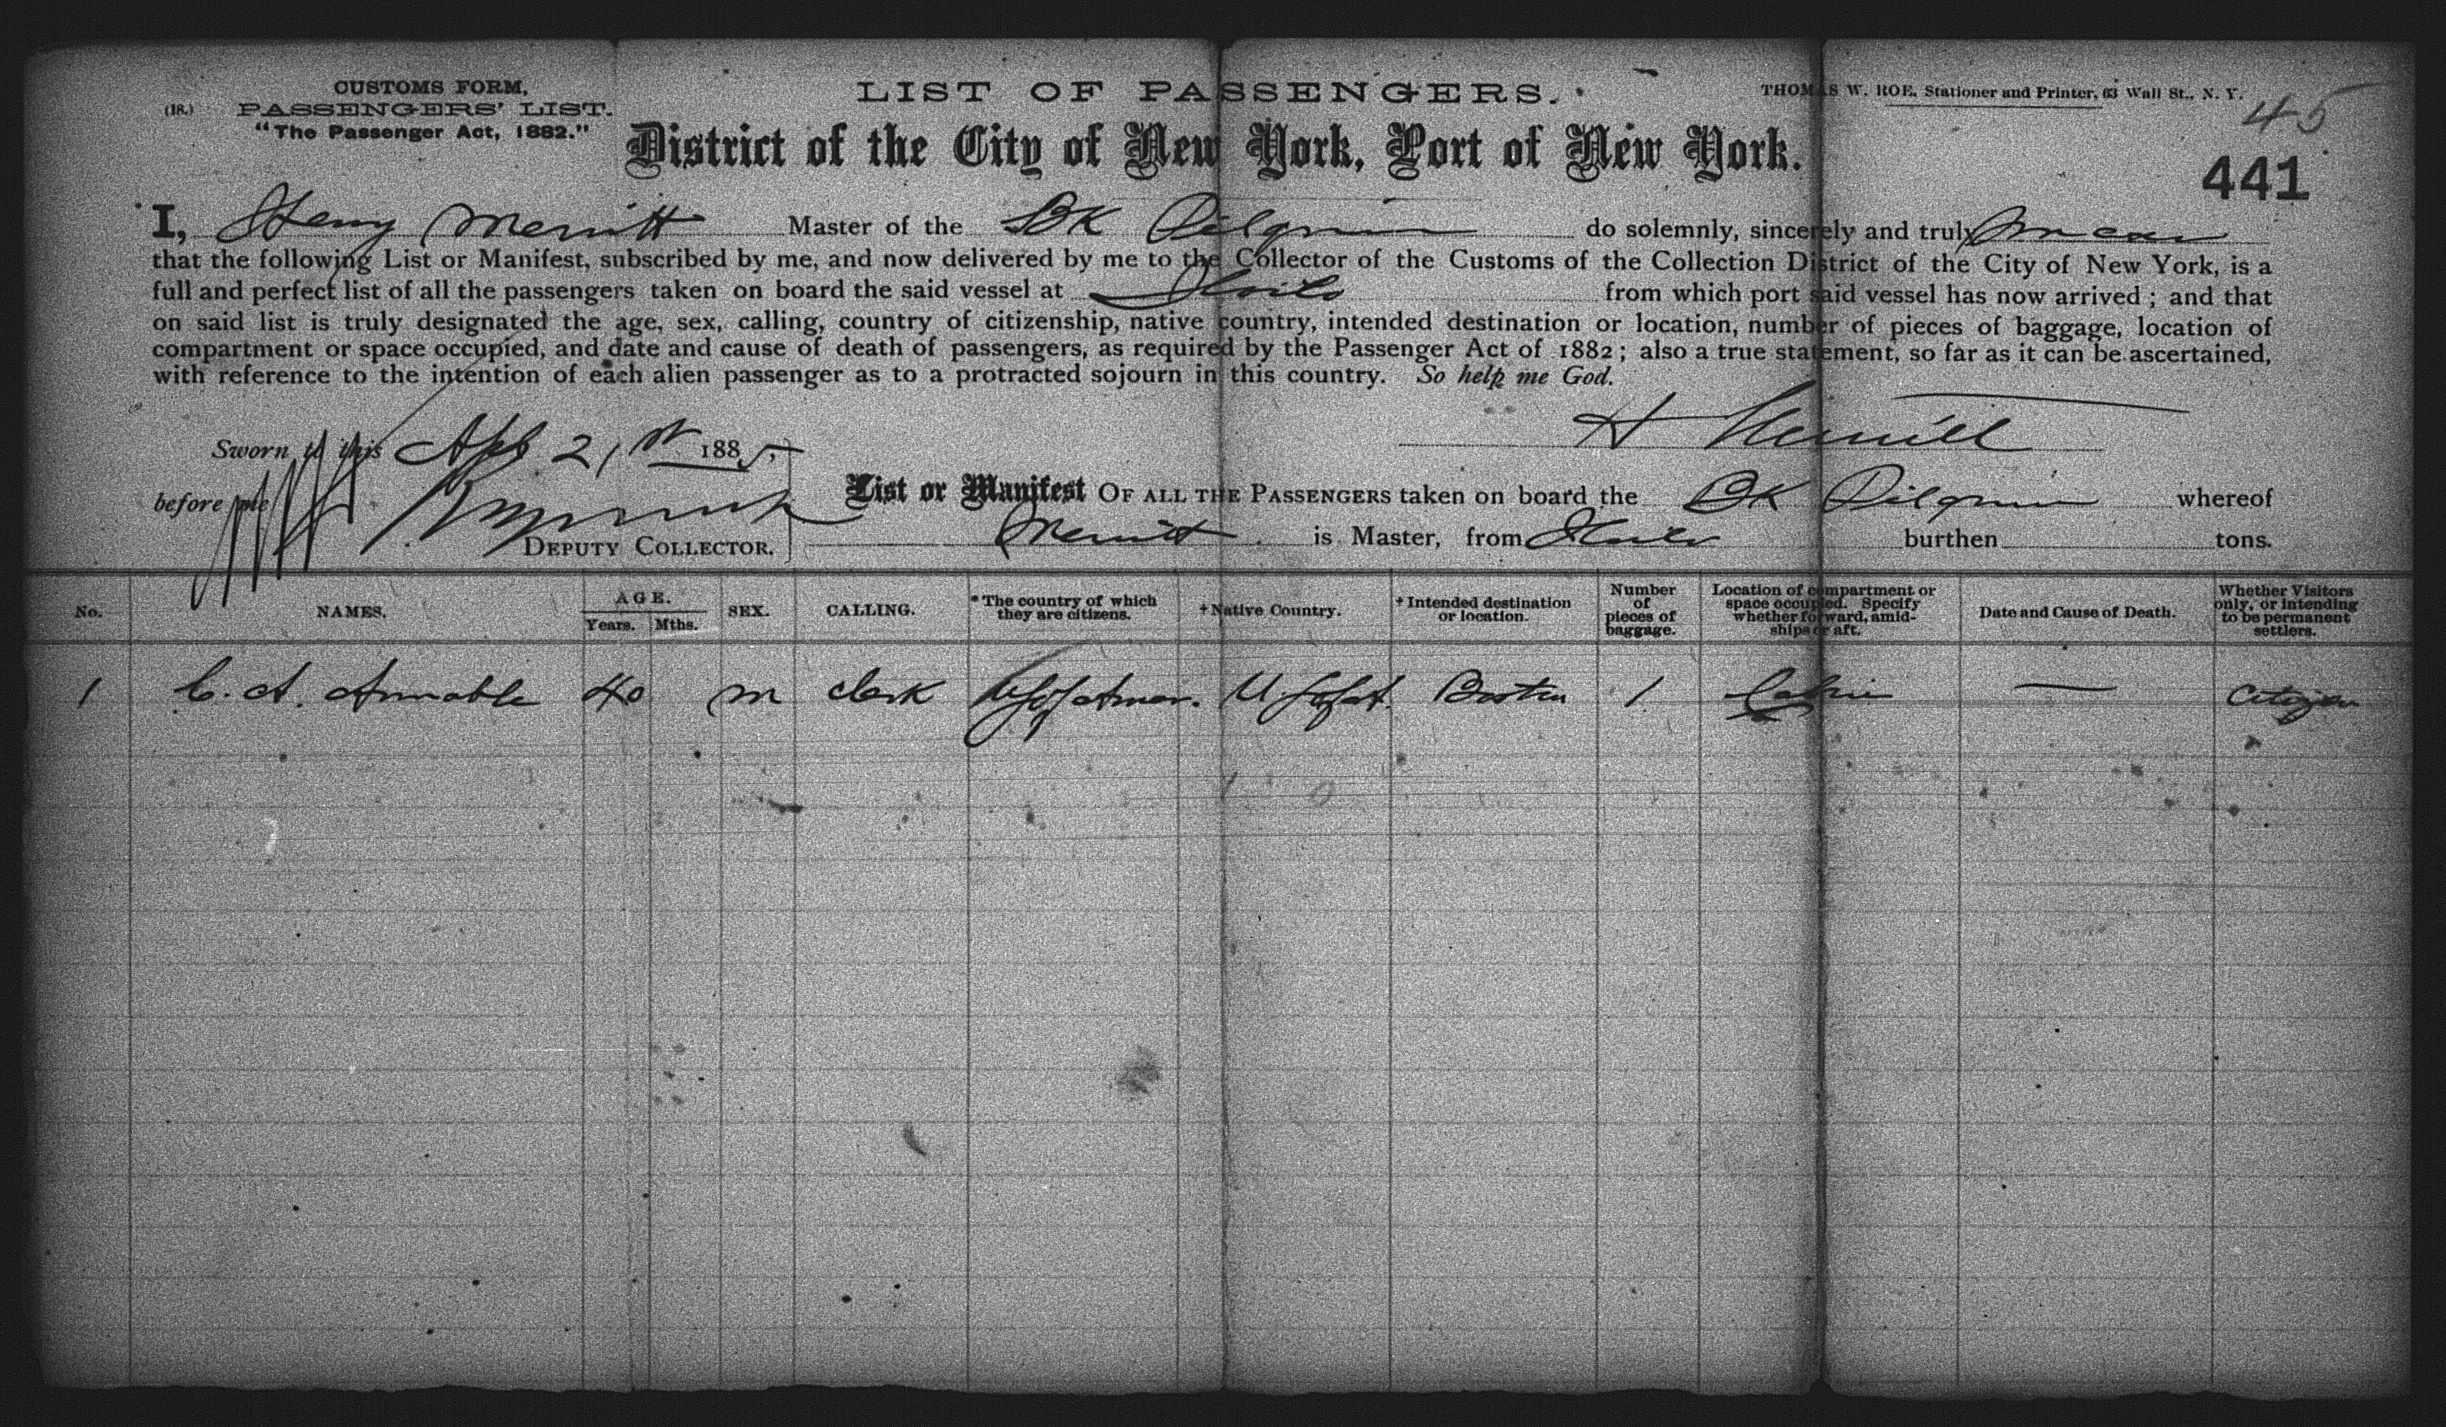 CUSTOMS FORM,
(18.) PASSENGERS' LIST.
"The Passenger Act, 1882."
LIST OF PASSENGERS.
THOMAS W. ROE, Stationer and Printer, 63 Wall St., N. Y.
45
District of the City of New York, Port of New York.
441
I, Henry Merritt Master of the BK Pilgrim do solemnly, sincerely and truly swear
that the following List or Manifest, subscribed by me, and now delivered by me to the Collector of the Customs of the Collection District of the City of New York, is a
full and perfect list of all the passengers taken on board the said vessel at Iloilo from which port said vessel has now arrived; and that
on said list is truly designated the age, sex, calling, country of citizenship, native country, intended destination or location, number of pieces of baggage, location of
compartment or space occupied, and date and cause of death of passengers, as required by the Passenger Act of 1882; also a true statement, so far as it can be ascertained,
with reference to the intention of each alien passenger as to a protracted sojourn in this country. So help me God.
H Merritt
Sworn to this Apl 21st 1885,
before me
DEPUTY COLLECTOR.
List or Manifest OF ALL THE PASSENGERS taken on board the BK Pilgrim whereof
Merritt is Master, from Iloilo burthen tons.
No. NAMES. AGE. Years. Mths. SEX. CALLING. *The country of which they are citizens. †Native Country. †Intended destination or location. Number of pieces of baggage. Location of compartment or space occupied. Specify whether forward, amidships or aft. Date and Cause of Death. Whether Visitors only, or intending to be permanent settlers.
1 C. A. Annable 40 m clerk U S of Amer. U S of A. Boston 1 Cabin — Citizen